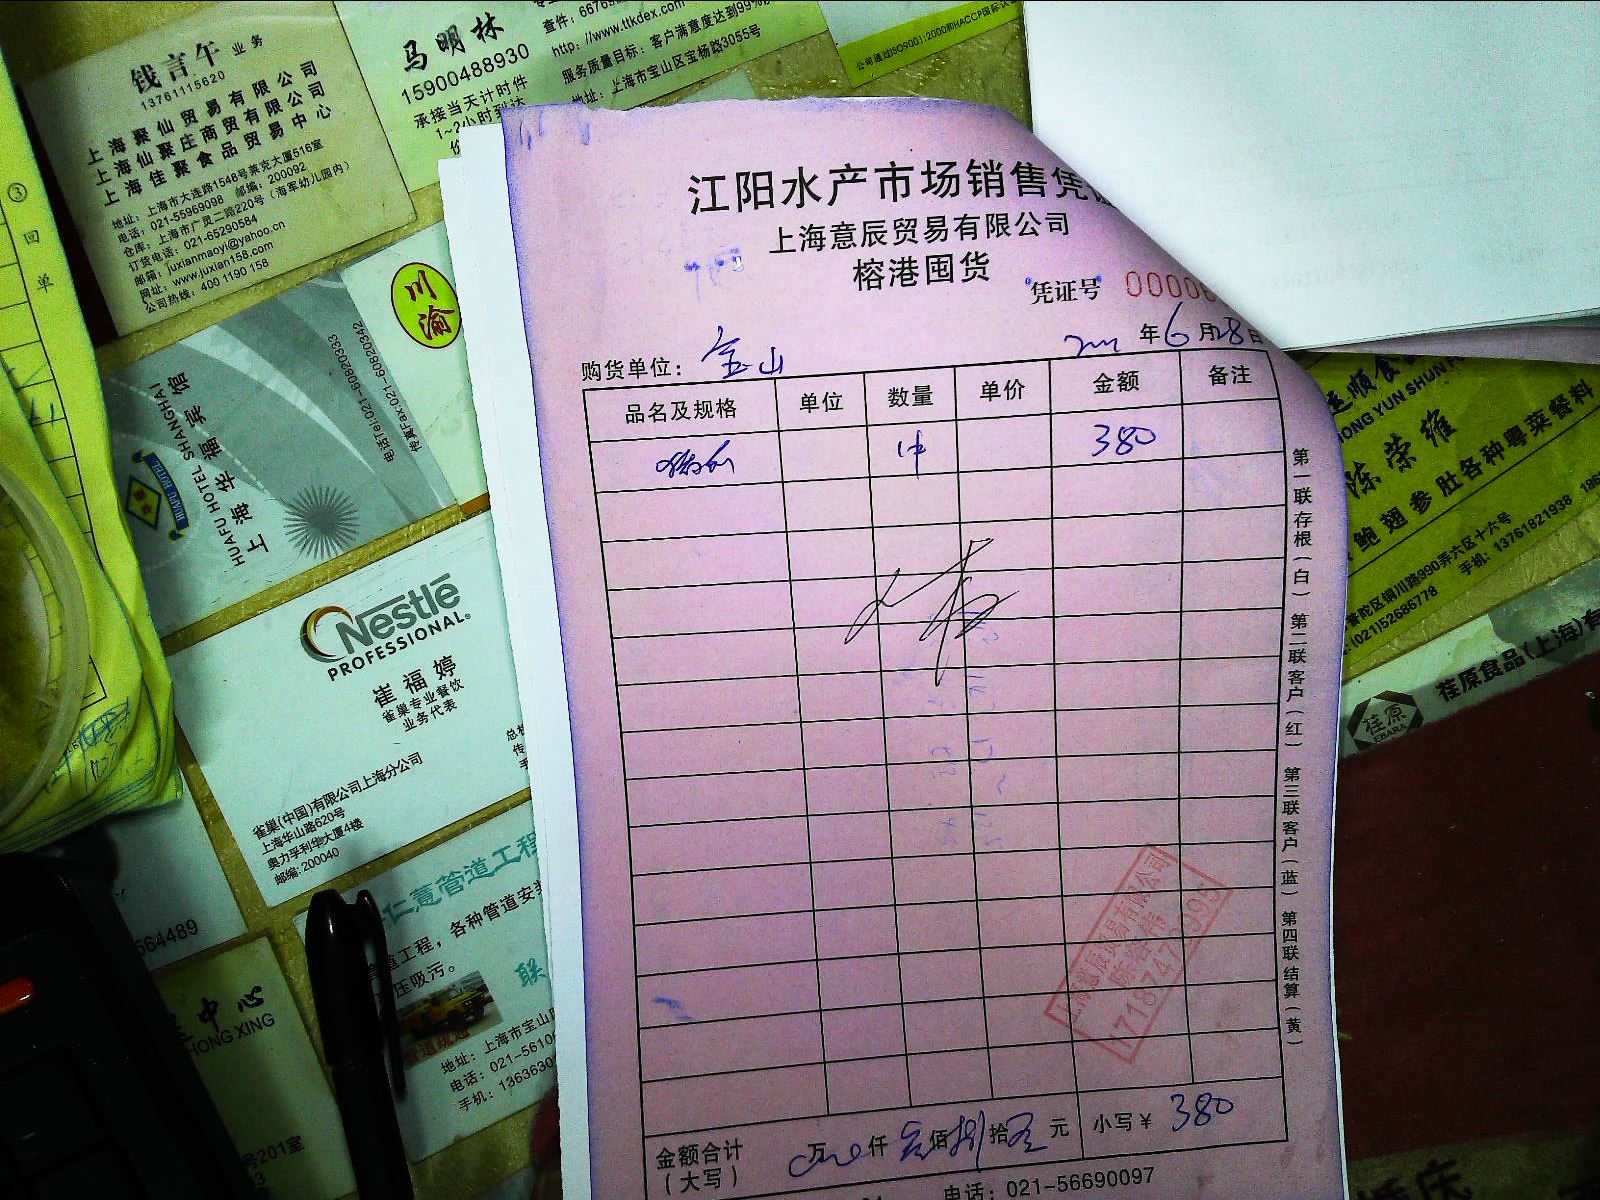 钱言午 业务
13761115620
上海聚仙贸易有限公司
上海仙聚庄商贸有限公司
上海佳聚食品贸易中心
地址：上海市大连路1548号莱克大厦516室
电话：021-55969098 邮编：200092
仓库：上海市广灵二路220号（海军幼儿园内）
订货电话：021-65290584
邮箱：juxianmaoyi@yahoo.cn
网址：www.juxian158.com
公司热线：400 1190 158
马明林
15900488930
承接当天计时件
1~2小时到达
http://www.ttkdex.com
服务质量目标：客户满意度达到99%
地址：上海市宝山区宝杨路3055号
公司通过ISO9001:2000和HACCP国际认
③
回
单
川渝
HUAFU HOTEL SHANGHAI
上海华福宾馆
电话Tel:021-60820333
传真Fax:021-60820342
Nestlé
PROFESSIONAL
崔福婷
雀巢专业餐饮
业务代表
雀巢(中国)有限公司上海分公司
上海华山路620号
奥力孚利华大厦4楼
邮编: 200040
仁薏管道工程
道工程，各种管道安
压吸污。
联
管道疏通
地址：上海市宝山
电话：021-5610
手机：1363630
564489
中心
HONG XING
号201室
江阳水产市场销售凭
上海意辰贸易有限公司
榕港囤货
凭证号 00008
年6月28日
购货单位：宝山
品名及规格 单位 数量 单价 金额 备注
1件 380
第一联存根（白） 第二联客户（红） 第三联客户（蓝） 第四联结算（黄）
上海意辰贸易有限公司
金额合计（大写） 万 仟 叁佰捌拾 元 小写￥ 380
电话：021-56690097
顺食
HONG YUN SHUN
陈荣雍
鲍翅参肚各种粤菜餐料
普陀区铜川路990弄六区十六号
(021)52686778 手机：13761821938
荏原
EBARA
荏原食品(上海)有